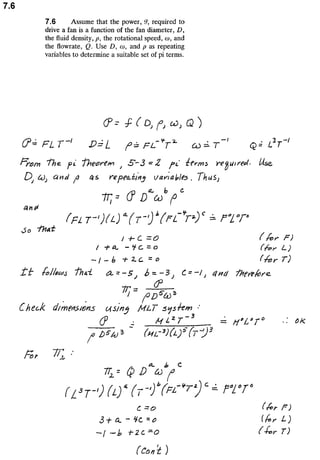 7.6
7.6 Assume that the power, 𝒫, required to
drive a fan is a function of the fan diameter, D,
the fluid density, ρ, the rotational speed, ω, and
the flowrate, Q. Use D, ω, and ρ as repeating
variables to determine a suitable set of pi terms.
𝒫 = f ( D, ρ, ω, Q )
𝒫 ≐ FL T⁻¹ D ≐ L ρ ≐ FL⁻⁴T² ω ≐ T⁻¹ Q ≐ L³T⁻¹
From the pi theorem, 5-3 = 2 pi terms required. Use
D, ω, and ρ as repeating variables. Thus,
π₁ = 𝒫 Dᵃ ωᵇ ρᶜ
and
(FL T⁻¹)(L)ᵃ(T⁻¹)ᵇ(FL⁻⁴T²)ᶜ ≐ F⁰L⁰T⁰
so that
1 + c = 0 (for F)
1 + a - 4c = 0 (for L)
-1 - b + 2c = 0 (for T)
It follows that a = -5, b = -3, c = -1, and therefore
π₁ = 𝒫 / ρD⁵ω³
Check dimensions using MLT system :
𝒫 / ρD⁵ω³ ≐ ML²T⁻³ / (ML⁻³)(L)⁵(T⁻¹)³ ≐ M⁰L⁰T⁰ ∴ OK
For π₂ :
π₂ = Q Dᵃ ωᵇ ρᶜ
(L³T⁻¹)(L)ᵃ(T⁻¹)ᵇ(FL⁻⁴T²)ᶜ ≐ F⁰L⁰T⁰
c = 0 (for F)
3 + a - 4c = 0 (for L)
-1 - b + 2c = 0 (for T)
(con't)